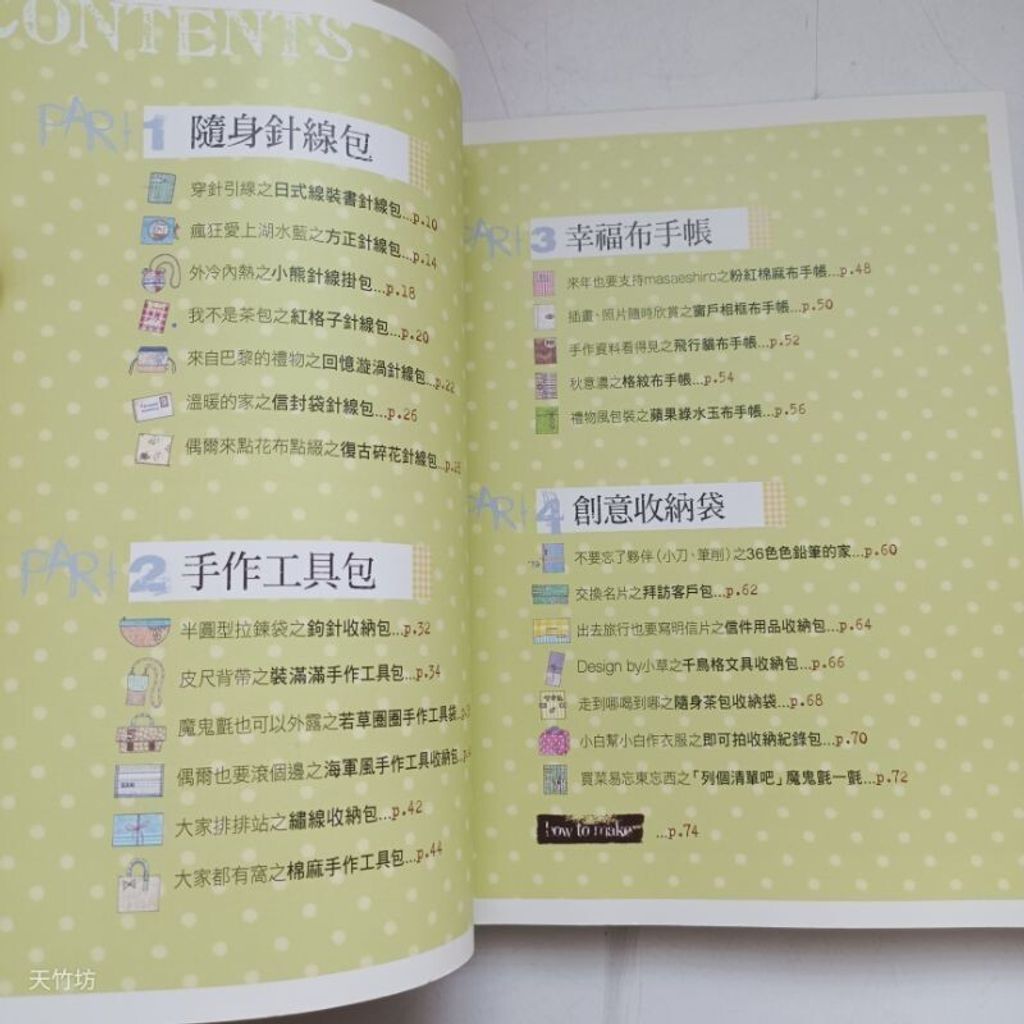 CONTENTS
PART 1 隨身針線包
穿針引線之日式線裝書針線包...p.10
瘋狂愛上湖水藍之方正針線包...p.14
外冷內熱之小熊針線掛包...p.18
我不是茶包之紅格子針線包...p.20
來自巴黎的禮物之回憶漩渦針線包...p.22
溫暖的家之信封袋針線包...p.26
偶爾來點花布點綴之復古碎花針線包...p.28
PART 2 手作工具包
半圓型拉鍊袋之鉤針收納包...p.32
皮尺背帶之裝滿滿手作工具包...p.34
魔鬼氈也可以外露之若草圈圈手作工具袋...p.
偶爾也要滾個邊之海軍風手作工具收納包...p.
大家排排站之繡線收納包...p.42
大家都有窩之棉麻手作工具包...p.44
PART 3 幸福布手帳
來年也要支持masaeshiro之粉紅棉麻布手帳...p.48
插畫、照片隨時欣賞之窗戶相框布手帳...p.50
手作資料看得見之飛行貓布手帳...p.52
秋意濃之格紋布手帳...p.54
禮物風包裝之蘋果綠水玉布手帳...p.56
PART 4 創意收納袋
不要忘了夥伴（小刀、筆削）之36色色鉛筆的家...p.60
交換名片之拜訪客戶包...p.62
出去旅行也要寫明信片之信件用品收納包...p.64
Design by小草之千鳥格文具收納包...p.66
走到哪喝到哪之隨身茶包收納袋...p.68
小白幫小白作衣服之即可拍收納紀錄包...p.70
買菜易忘東忘西之「列個清單吧」魔鬼氈一氈...p.72
how to make ...p.74
天竹坊